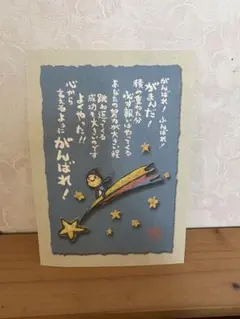 がんばれ！ふんばれ！
がまんだ！
積み重ねた分
必ず報いはやってくる
あなたの努力が大きい程
跳ね返ってくる
成功も大きいのです
よくやった!!
心から
言えるように
がんばれ！